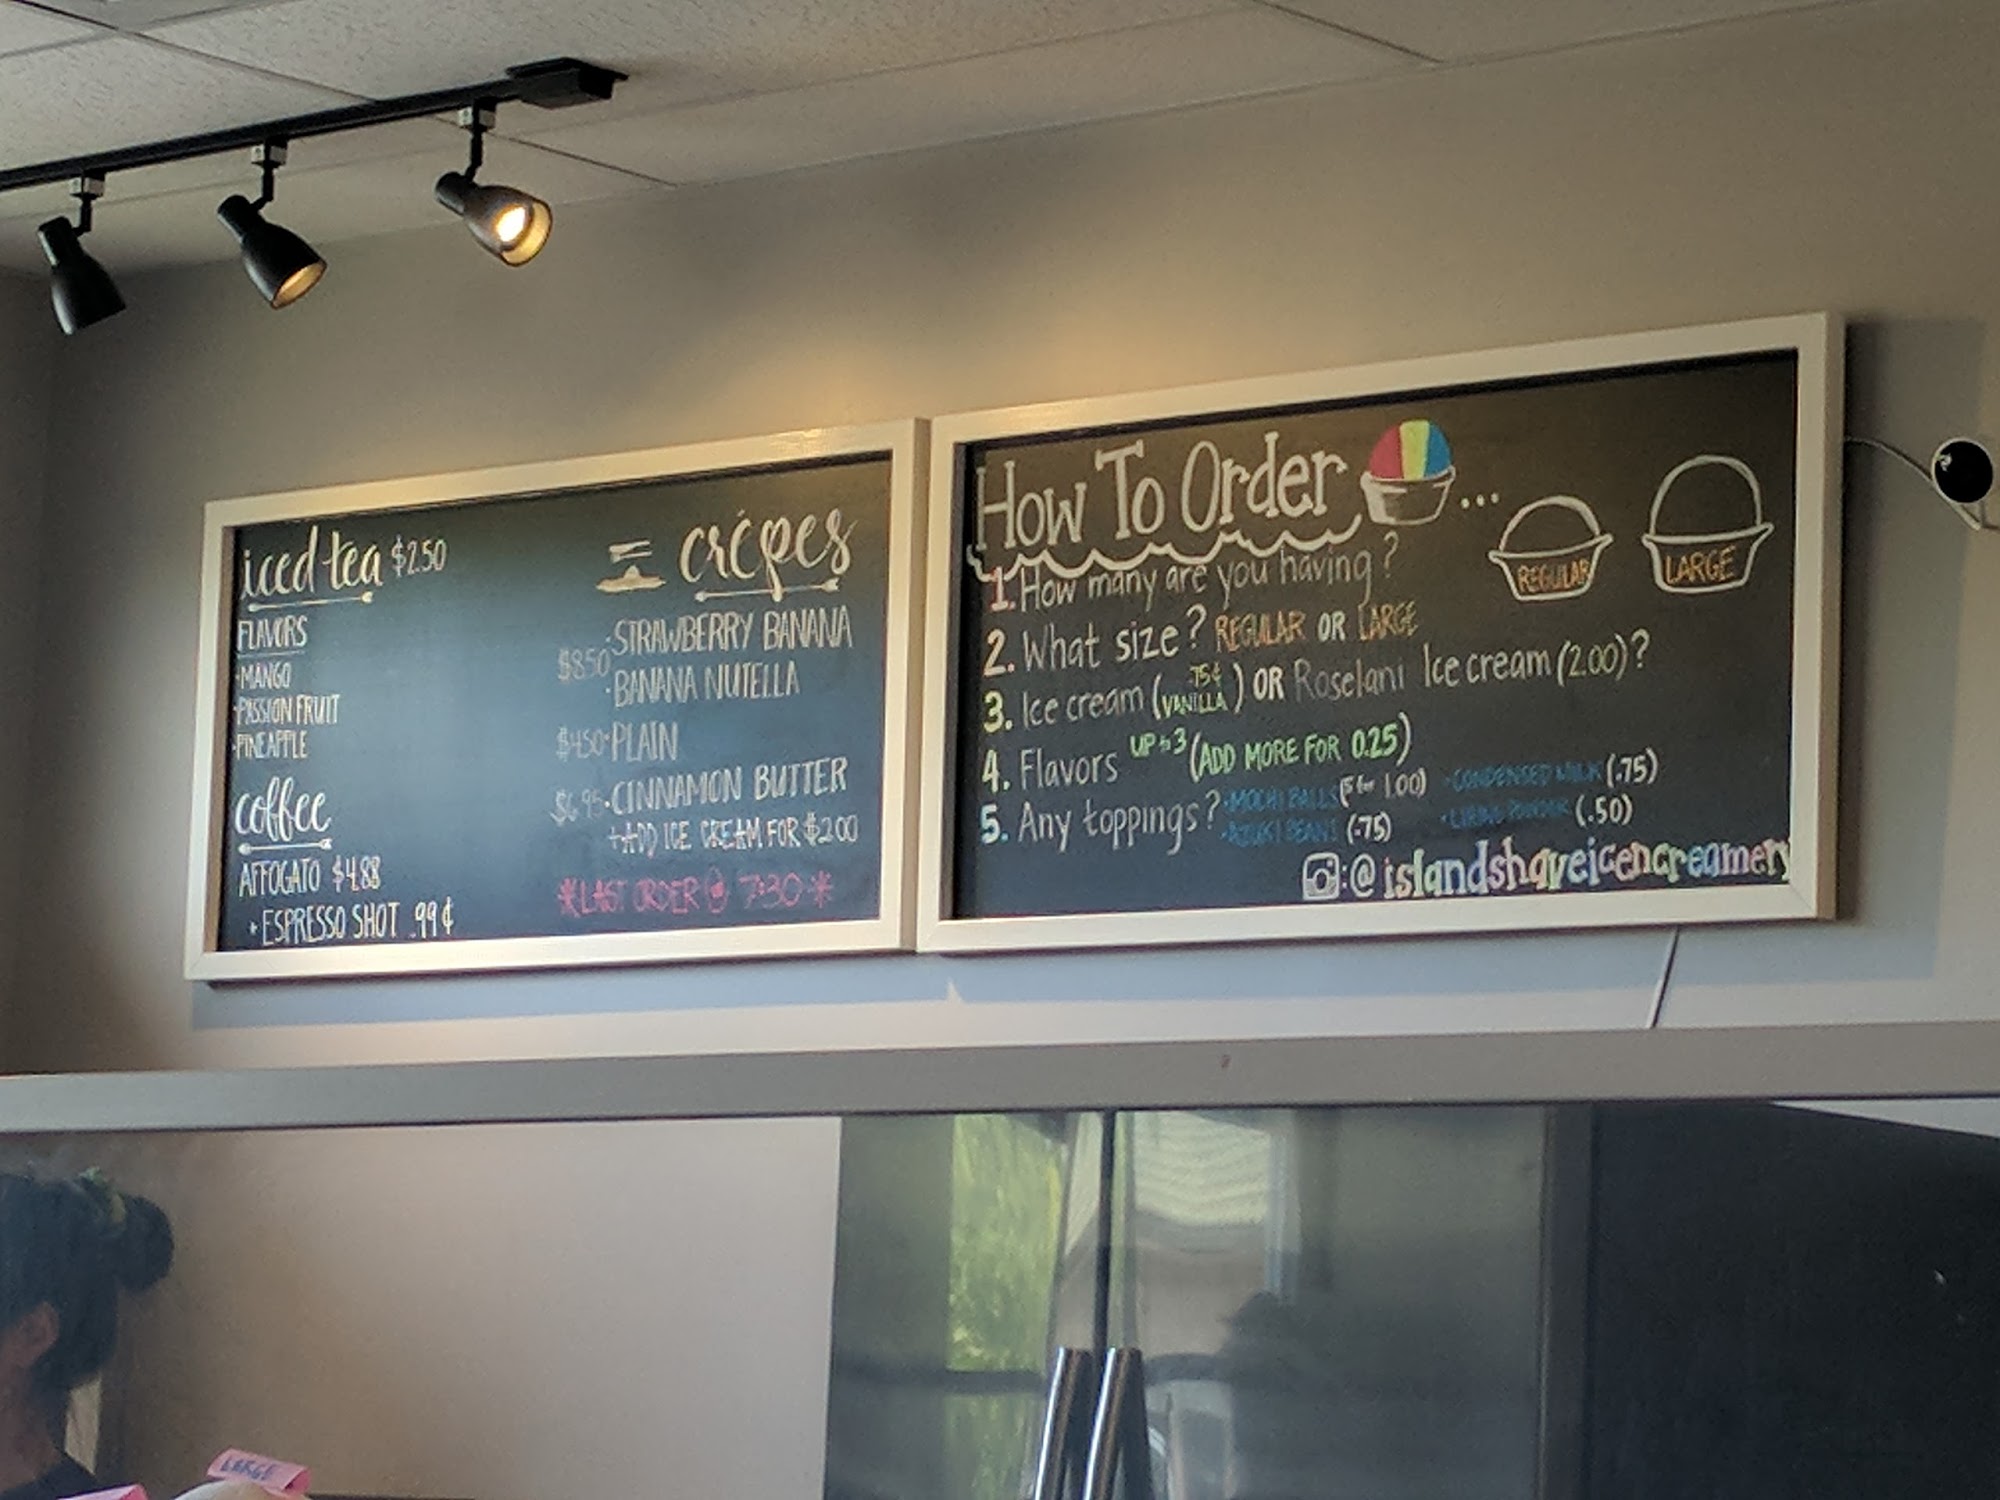 iced tea $2.50
FLAVORS
·MANGO
·PASSION FRUIT
·PINEAPPLE
coffee
AFFOGATO $4.88
• ESPRESSO SHOT .99¢
crépes
$8.50 ·STRAWBERRY BANANA
·BANANA NUTELLA
$4.50·PLAIN
$6.95·CINNAMON BUTTER
+ADD ICE CREAM FOR $2.00
*LAST ORDER @ 7:30*
How To Order ...
1. How many are you having?
2. What size? REGULAR OR LARGE
3. Ice cream (.75¢ VANILLA) OR Roselani Ice cream (2.00)?
4. Flavors UP to 3 (ADD MORE FOR 0.25)
5. Any toppings? ·MOCHI BALLS (5 for 1.00) ·CONDENSED MILK (.75)
·AZUKI BEANS (.75) ·LI HING POWDER (.50)
REGULAR
LARGE
:@islandshaveicencreamery
LARGE